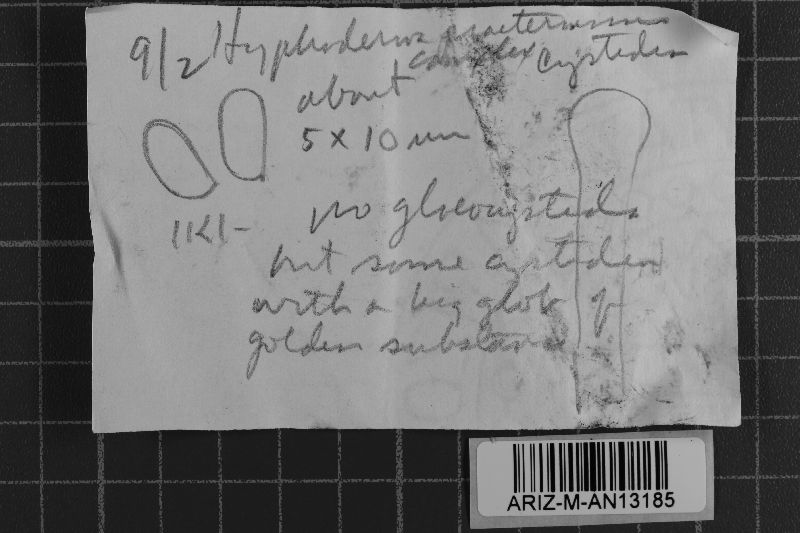 9/2 Hyphoderma praetermissum
complex cystidia
about
5 x 10 um
IKI-
no gloeocystidia
but some cystidia
with a big glob of
golden substance
ARIZ-M-AN13185